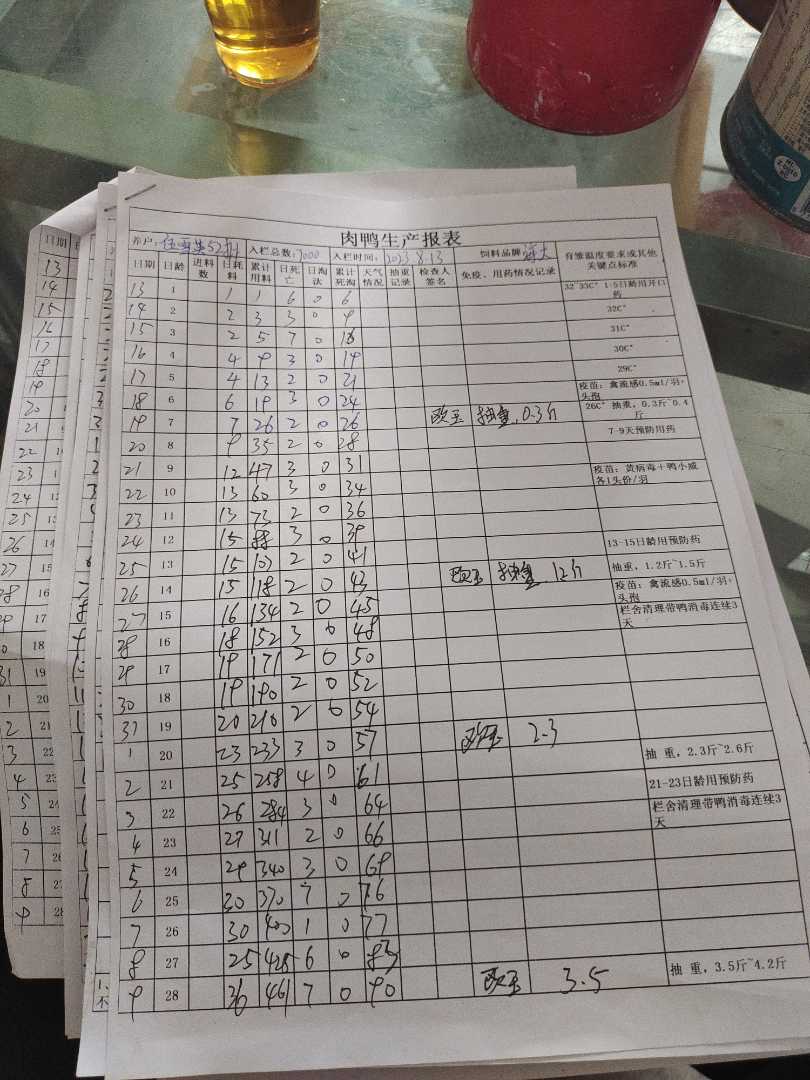 肉鸭生产报表
养户: 入栏总数: 7000 入栏时间: 2023.8.13 饲料品牌 育雏温度要求或其他关键点标准
日期 日龄 进料数 日耗料 累计用料 日死亡 日淘汰 累计死淘 天气情况 抽重记录 检查人签名 免疫、用药情况记录
13 1 1 1 6 0 6 32~33C° 1-5日龄用开口药
14 2 2 3 3 0 9 32C°
15 3 2 5 7 0 16 31C°
16 4 4 9 3 0 19 30C°
17 5 4 13 2 0 21 29C°
18 6 6 19 3 0 24 疫苗:禽流感0.5ml/羽+头孢
19 7 7 26 2 0 26 抽重 0.3斤 26C° 抽重,0.3斤~0.4斤
20 8 9 35 2 0 28 7-9天预防用药
21 9 12 47 3 0 31
22 10 13 60 3 0 34 疫苗:黄病毒+鸭小减各1头份/羽
23 11 13 73 2 0 36
24 12 15 88 3 0 39
25 13 15 103 2 0 41 13-15日龄用预防药
26 14 15 118 2 0 43 抽重 1.2斤 抽重,1.2斤~1.5斤
27 15 16 134 2 0 45 疫苗:禽流感0.5ml/羽+头孢
28 16 18 152 3 0 48 栏舍清理带鸭消毒连续3天
29 17 19 171 2 0 50
30 18 19 190 2 0 52
31 19 20 210 2 0 54
1 20 23 233 3 0 57 2.3 抽重,2.3斤~2.6斤
2 21 25 258 4 0 61 21-23日龄用预防药
3 22 26 284 3 0 64 栏舍清理带鸭消毒连续3天
4 23 27 311 2 0 66
5 24 29 340 3 0 69
6 25 30 370 7 0 76
7 26 30 400 1 0 77
8 27 25 425 6 0 83
9 28 36 461 7 0 90 3.5 抽重,3.5斤~4.2斤